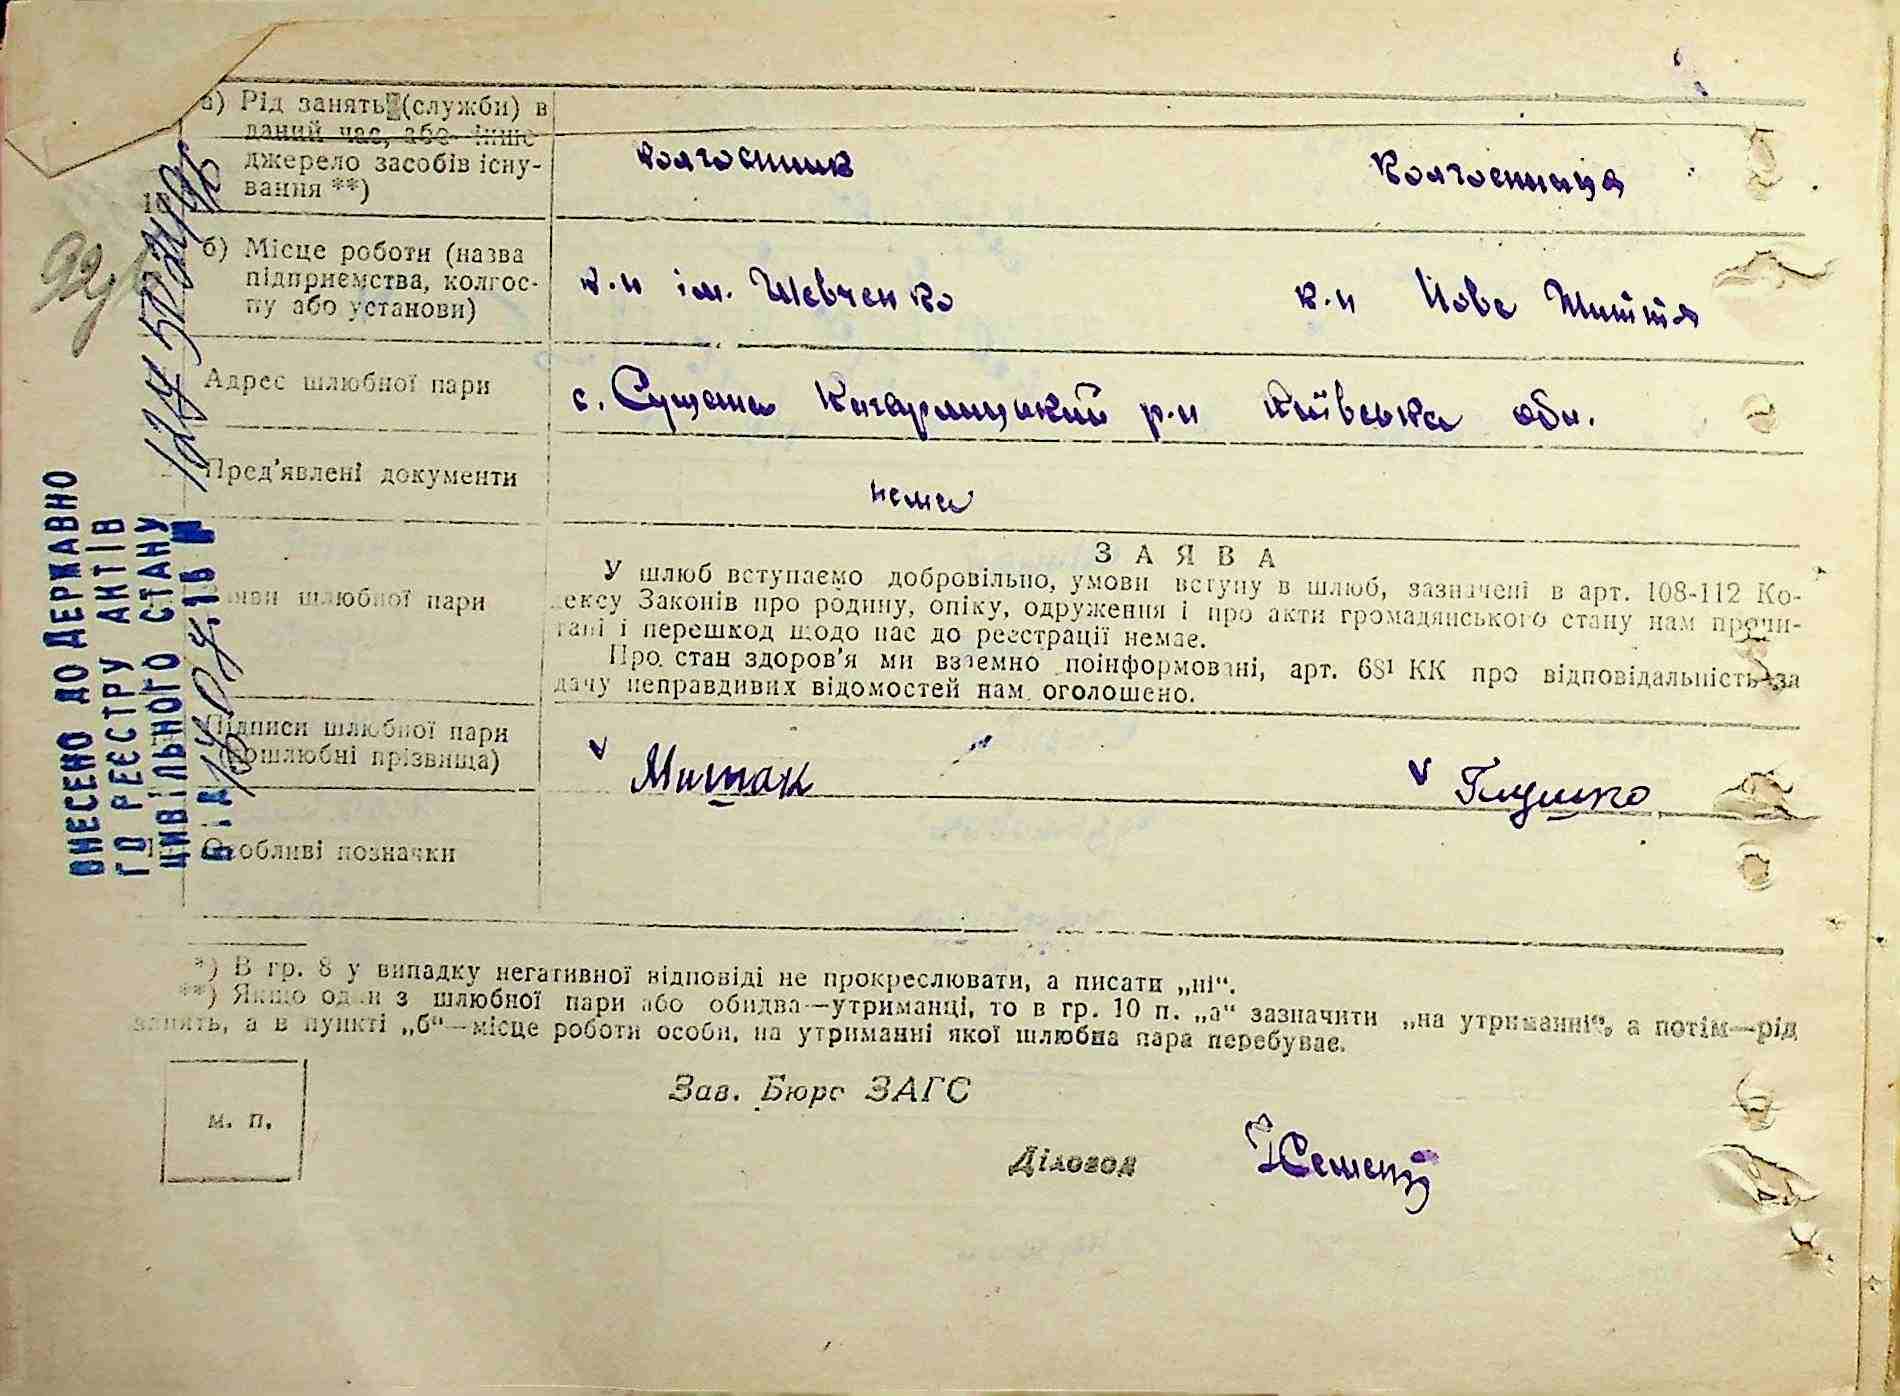 а) Рід занять (служби) в
даний час, або інше
джерело засобів існу-
вання **)
колгосник
колгосниця
10
б) Місце роботи (назва
підприємства, колгос-
пу або установи)
к-п ім. Шевченко
к-п Нове Життя
Адрес шлюбної пари
с. Сущани Кагарлицький р-н Київська обл.
Пред'явлені документи
нема
Заяви шлюбної пари
ЗАЯВА
У шлюб вступаємо добровільно, умови вступу в шлюб, зазначені в арт. 108-112 Ко-
дексу Законів про родину, опіку, одруження і про акти громадянського стану нам прочи-
тані і перешкод щодо нас до реєстрації немає.
Про стан здоров'я ми взаємно поінформовані, арт. 68¹ КК про відповідальність за
дачу неправдивих відомостей нам оголошено.
Підписи шлюбної пари
(дошлюбні прізвища)
v Мишак
v Глушко
Особливі позначки
*) В гр. 8 у випадку негативної відповіді не прокреслювати, а писати „ні“.
**) Якщо один з шлюбної пари або обидва—утриманці, то в гр. 10 п. „а“ зазначити „на утриманні“, а потім—рід
занять, а в пункті „б“—місце роботи особи, на утриманні якої шлюбна пара перебуває.
Зав. Бюро ЗАГС
м. п.
Діловод
ВНЕСЕНО ДО ДЕРЖАВНО
ГО РЕЄСТРУ АКТІВ
ЦИВІЛЬНОГО СТАНУ